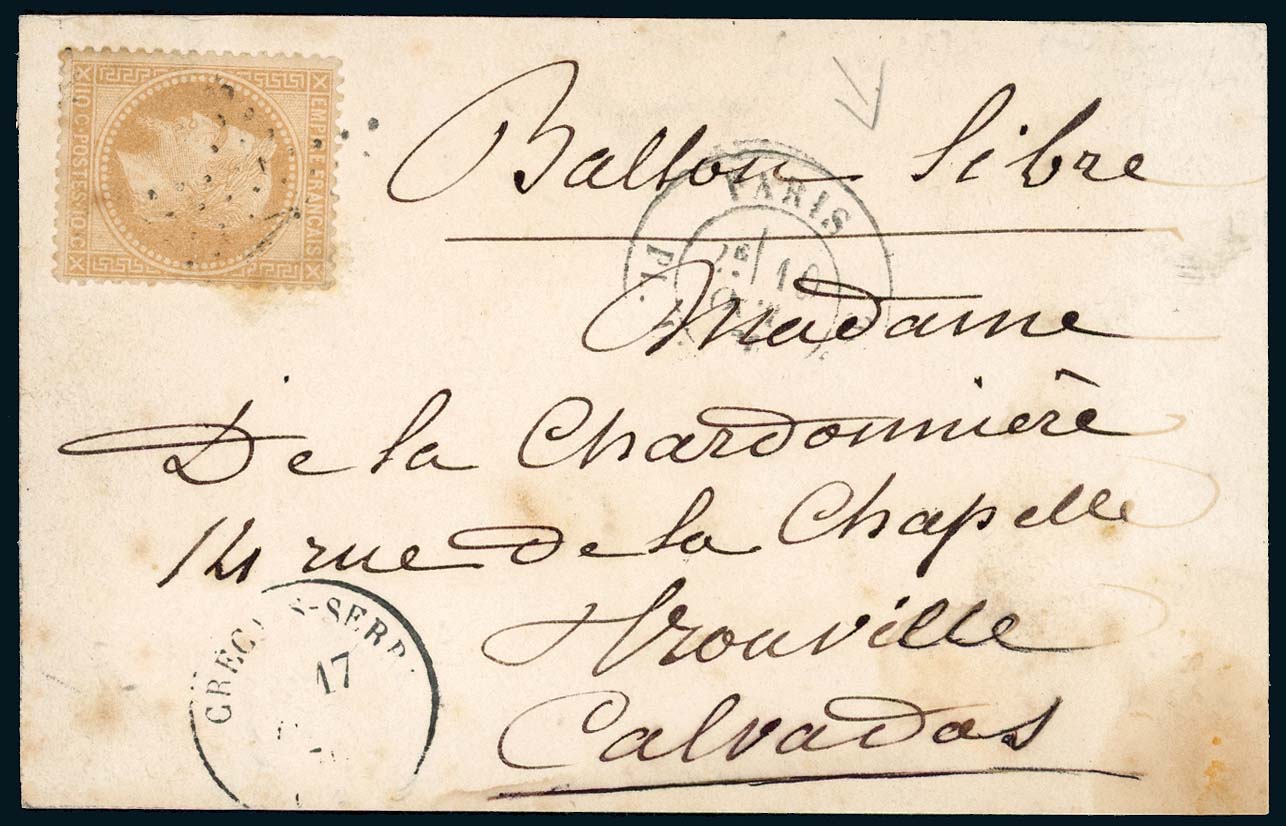 EMPIRE FRANÇAIS
10 C. POSTES 10 C.
Ballon libre
PARIS
2E 10
Madame
De la Chardonnière
14 rue de la Chapelle
Trouville
Calvados
17